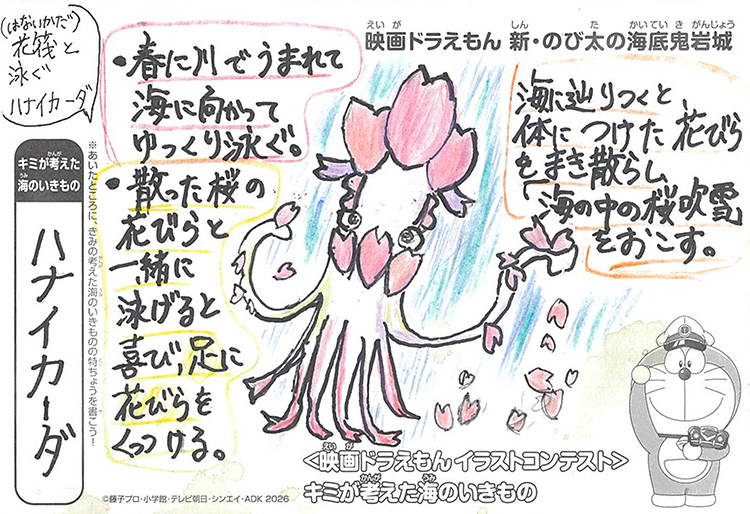 (はないかだ)
花筏と
泳ぐ
ハナイカーダ
えいが しん た かいてい きがんじょう
映画ドラえもん 新・のび太の海底鬼岩城
・春に川でうまれて
海に向かって
ゆっくり泳ぐ。
・散った桜の
花びらと
一緒に
泳げると
喜び、足に
花びらを
くっつける。
海に辿りつくと、
体につけた花びら
をまき散らし、
「海の中の桜吹雪」
をおこす。
かんが
キミが考えた
うみ
海のいきもの
ハナイカーダ
※あいたところに、きみの考えた海のいきものの特ちょうを書こう!
えいが
<映画ドラえもん イラストコンテスト>
かんが うみ
キミが考えた海のいきもの
©藤子プロ・小学館・テレビ朝日・シンエイ・ADK 2026